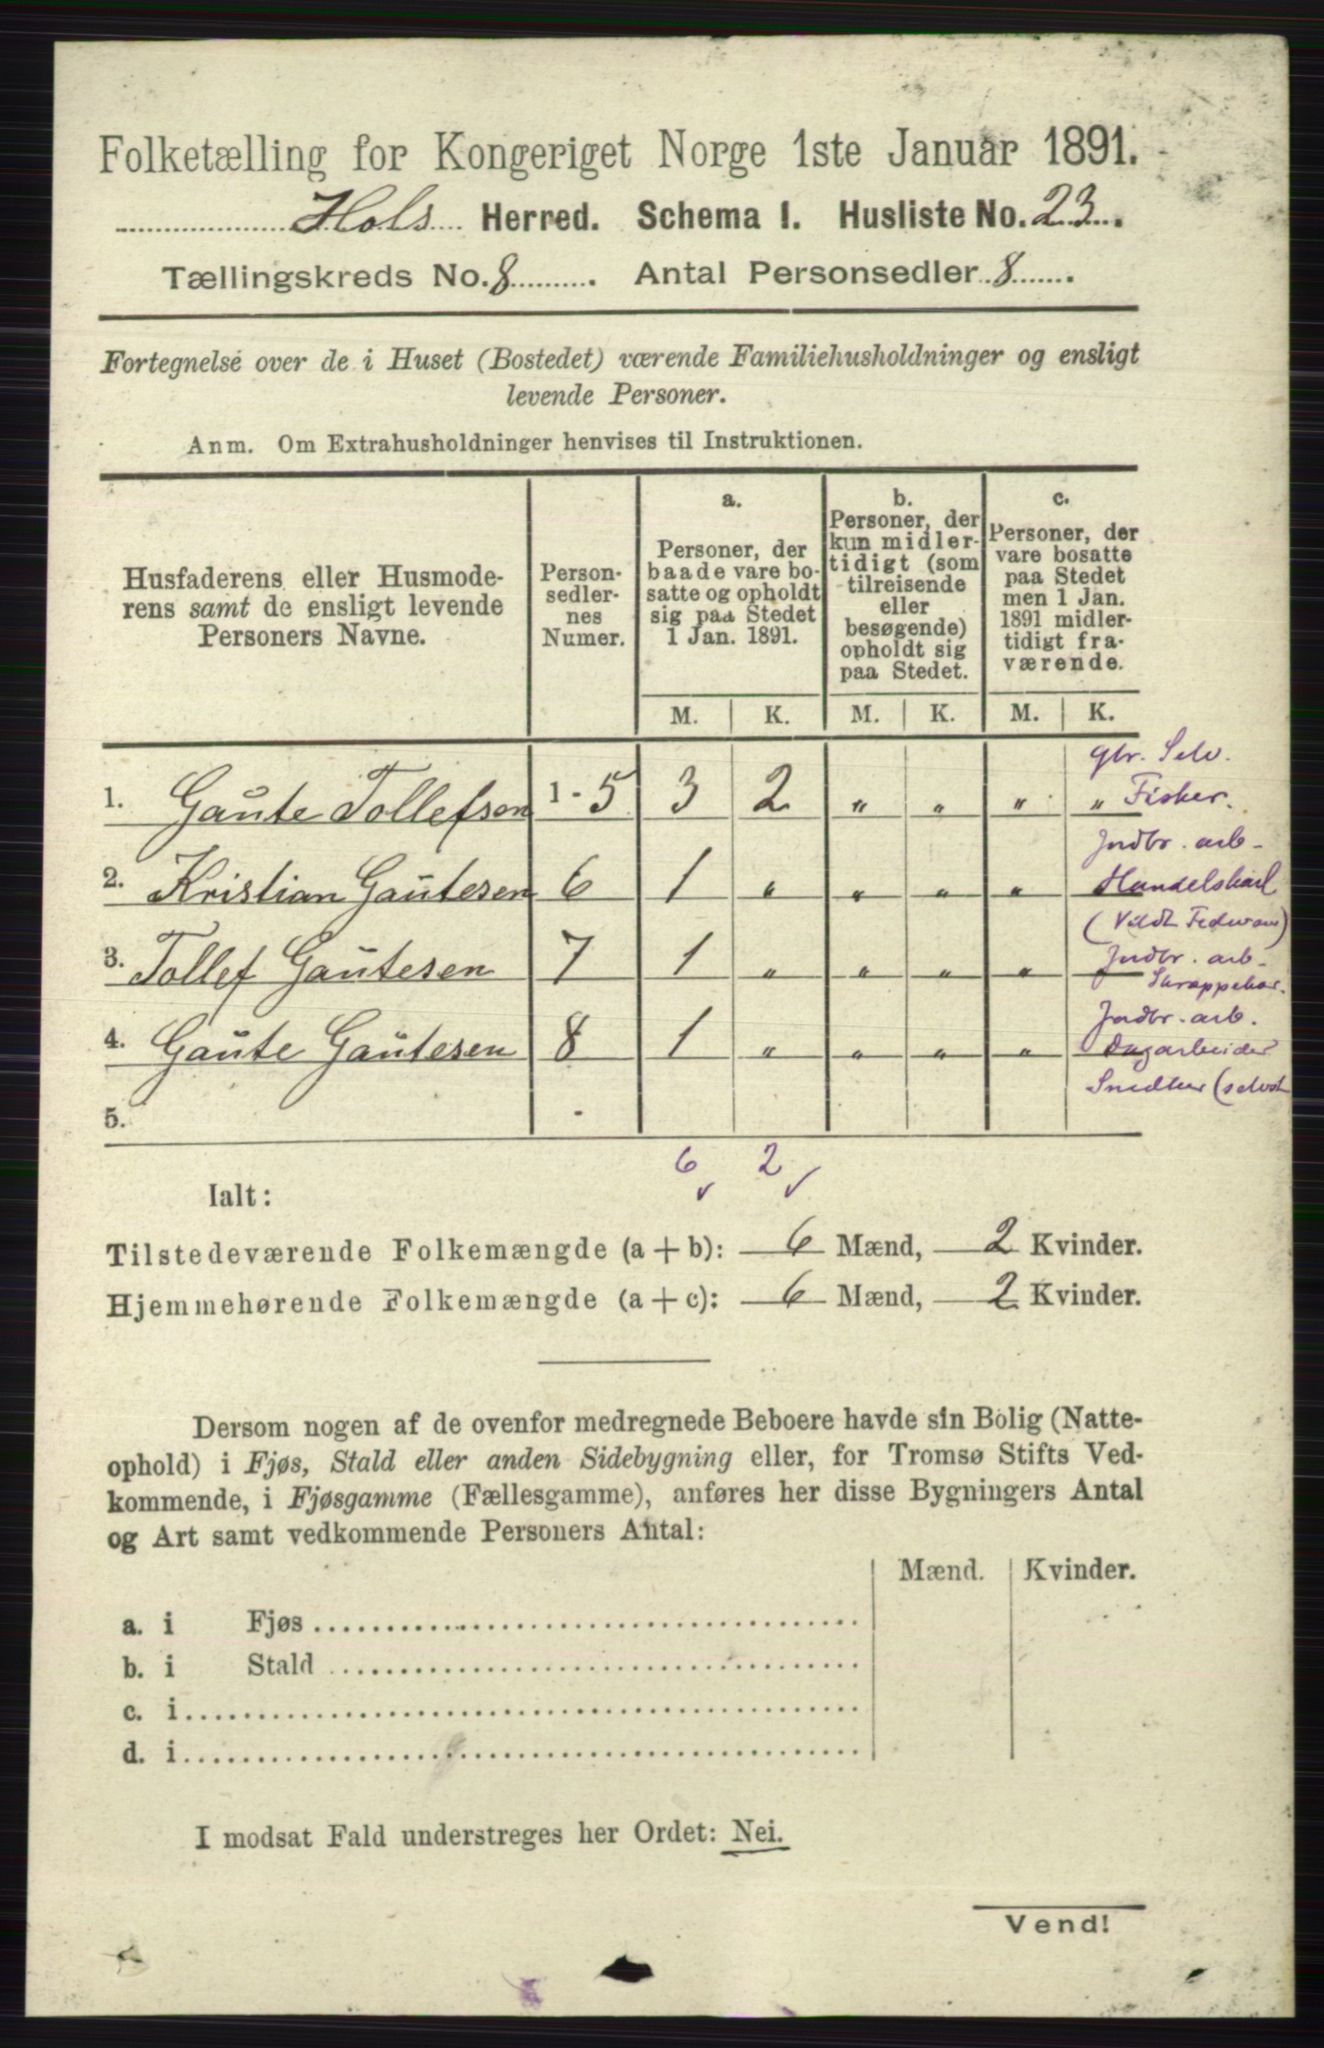 Folketælling for Kongeriget Norge 1ste Januar 1891.
Hols Herred. Schema I. Husliste No. 23.
Tællingskreds No. 8. Antal Personsedler 8.
Fortegnelse over de i Huset (Bostedet) værende Familiehusholdninger og ensligt
levende Personer.
Anm. Om Extrahusholdninger henvises til Instruktionen.
Husfaderens eller Husmode-
rens samt de ensligt levende
Personers Navne.
Person-
sedler-
nes
Numer.
a.
Personer, der
baade vare bo-
satte og opholdt
sig paa Stedet
1 Jan. 1891.
b.
Personer, der
kun midler-
tidigt (som
tilreisende
eller
besøgende)
opholdt sig
paa Stedet.
c.
Personer, der
vare bosatte
paa Stedet
men 1 Jan.
1891 midler-
tidigt fra-
værende.
M. K. M. K. M. K.
gbr. Selv.
1. Gaute Tollefsen 1-5 3 2 " " " " Fisker.
Indbr. arb-
2. Kristian Gautesen 6 1 " " " " Handelskarl
(Vildt
3. Tollef Gautesen 7 1 " " " " Indbr. arb-
Indbr. arb.
4. Gaute Gautesen 8 1 " " " " Dagarbeider
5. -
6 2
Ialt:
Tilstedeværende Folkemængde (a + b): 6 Mænd, 2 Kvinder.
Hjemmehørende Folkemængde (a + c): 6 Mænd, 2 Kvinder.
Dersom nogen af de ovenfor medregnede Beboere havde sin Bolig (Natte-
ophold) i Fjøs, Stald eller anden Sidebygning eller, for Tromsø Stifts Ved-
kommende, i Fjøsgamme (Fællesgamme), anføres her disse Bygningers Antal
og Art samt vedkommende Personers Antal:
Mænd. Kvinder.
a. i Fjøs
b. i Stald
c. i
d. i
I modsat Fald understreges her Ordet: Nei.
Vend!